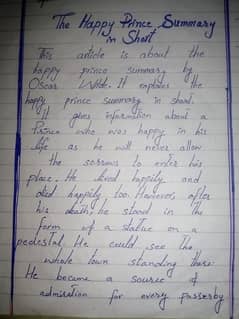 The Happy Prince Summary
in Short
This article is about the
happy prince summary by
Oscar Wilde. It explores the
happy prince summary in short.
It gives information about a
Prince who was happy in his
life as he will never allow
the sorrows to enter his
place. He lived happily and
died happily too. However, after
his death, he stood in the
form of a statue on a
pedestal. He could see the
whole town standing there.
He became a source of
admiration for every passerby